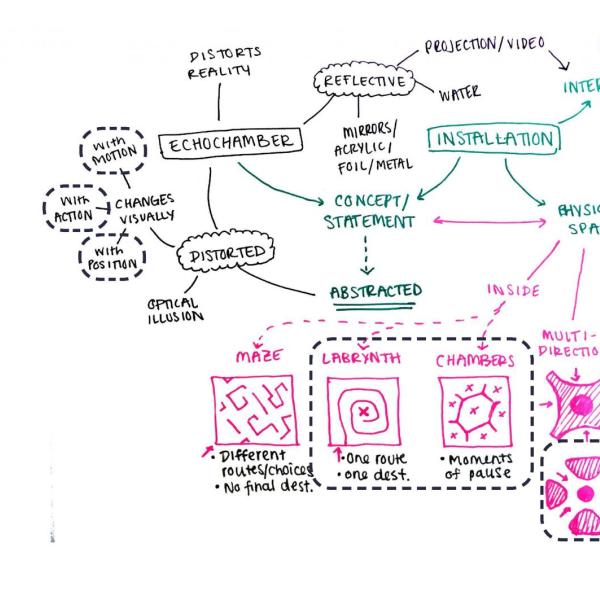 DISTORTS
REALITY
PROJECTION/VIDEO
REFLECTIVE
WATER
INTER
With
MOTION
ECHOCHAMBER
MIRRORS/
ACRYLIC/
FOIL/METAL
INSTALLATION
With
ACTION
CHANGES
VISUALLY
CONCEPT/
STATEMENT
PHYSIC
SPA
With
POSITION
DISTORTED
OPTICAL
ILLUSION
ABSTRACTED
INSIDE
MULTI-
DIRECTIO
MAZE
LABRYNTH
CHAMBERS
• Different
routes/choices
• No final dest.
• One route
• one dest.
• Moments
of pause